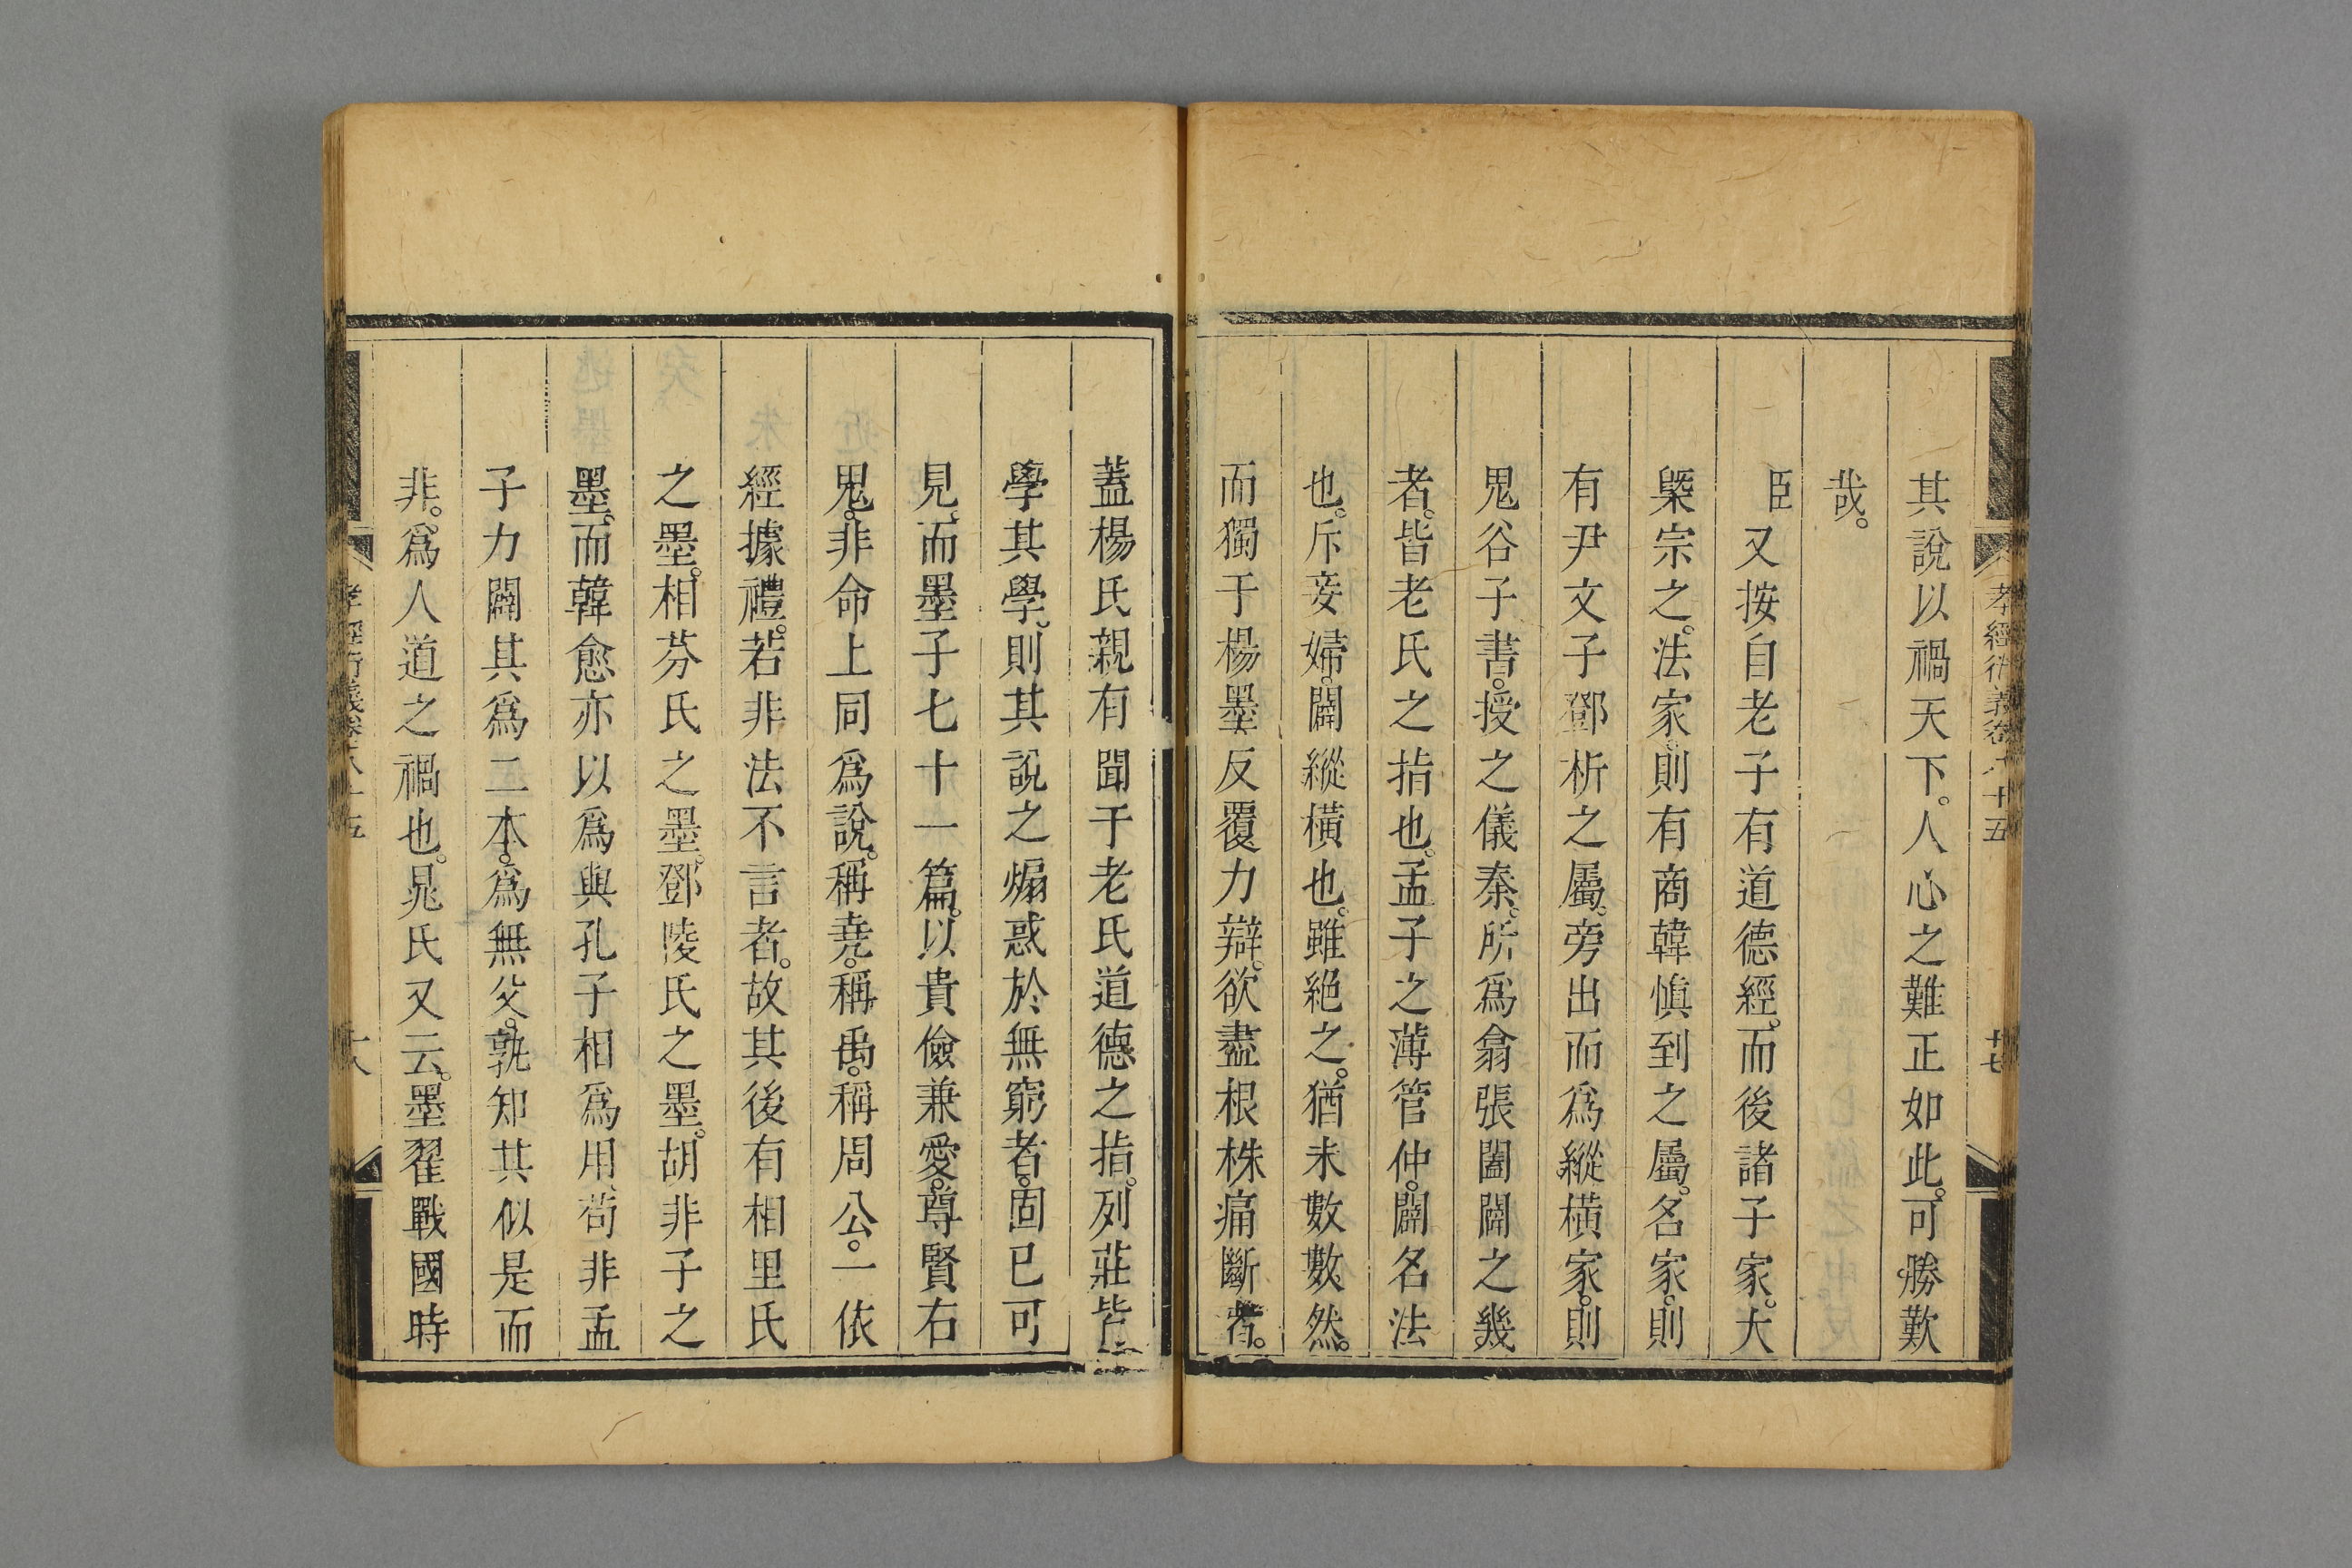 孝經衍義卷八十五
十七
其說以禍天下。人心之難正如此。可勝歎
哉。
臣又按自老子有道德經。而後諸子家。大
槩宗之。法家。則有商韓慎到之屬。名家。則
有尹文子鄧析之屬。旁出而為縱橫家。則
鬼谷子書。授之儀秦。所為翕張闔闢之幾
者。皆老氏之指也。孟子之薄管仲。闢名法
也。斥妾婦。闢縱橫也。雖絕之。猶未數數然。
而獨于楊墨反覆力辯。欲盡根株痛斷者。
蓋楊氏親有聞于老氏道德之指。列莊皆
學其學。則其說之煽惑於無窮者。固已可
見。而墨子七十一篇。以貴儉兼愛。尊賢右
鬼。非命上同為說。稱堯。稱禹。稱周公。一依
經據禮。若非法不言者。故其後有相里氏
之墨。相芬氏之墨。鄧陵氏之墨。胡非子之
墨。而韓愈亦以為與孔子相為用。苟非孟
子力闢其為二本。為無父。孰知其似是而
非。為人道之禍也。晁氏又云。墨翟戰國時
孝經衍義卷八十五
十八